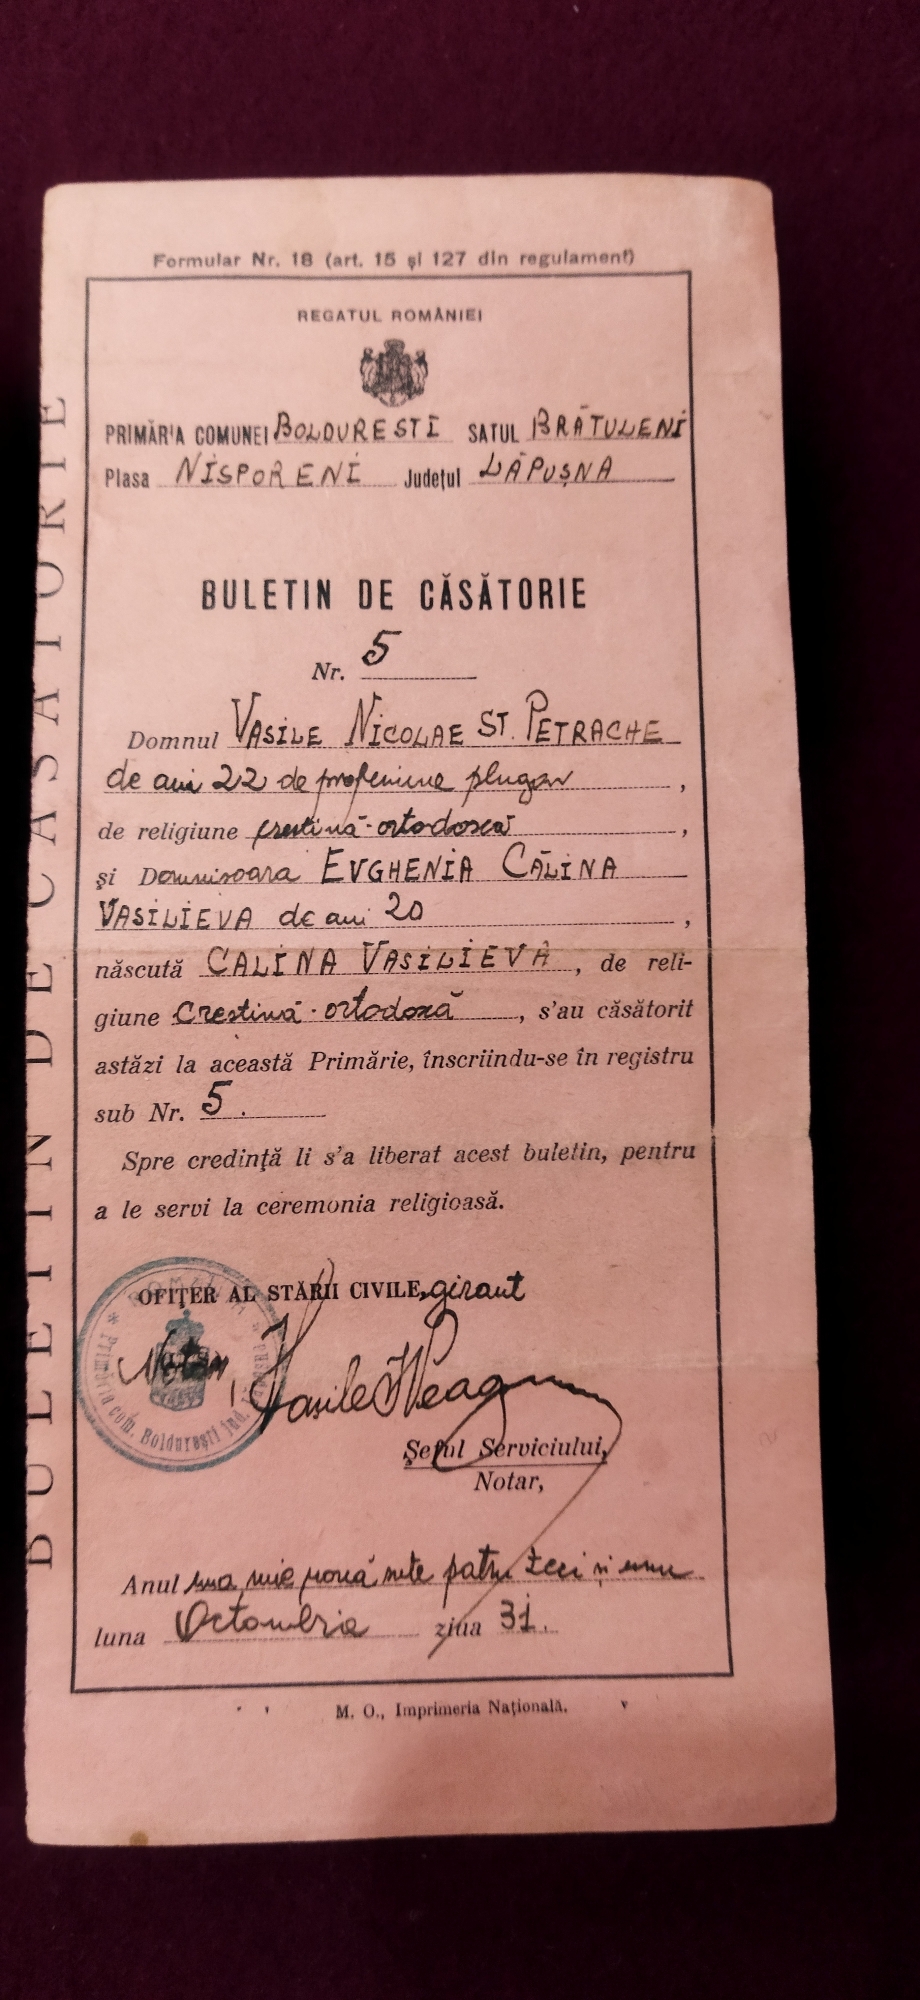 Formular Nr. 18 (art. 15 și 127 din regulament)
REGATUL ROMÂNIEI
PRIMĂRIA COMUNEI BOLDUREȘTI SATUL BRĂTULENI
Plasa NISPORENI Județul LĂPUȘNA
BULETIN DE CĂSĂTORIE
Nr. 5
Domnul VASILE NICOLAE ST. PETRACHE
de ani 22 de profesiune plugar,
de religiune creștină-ortodoxă,
și Domnișoara EVGHENIA CĂLINA
VASILIEVA de ani 20,
născută CALINA VASILIEVA, de reli-
giune Creștină-ortodoxă, s'au căsătorit
astăzi la această Primărie, înscriindu-se în registru
sub Nr. 5.
Spre credință li s'a liberat acest buletin, pentru
a le servi la ceremonia religioasă.
OFIȚER AL STĂRII CIVILE, girant
Notar, Vasile
Șeful Serviciului,
Notar,
Anul una mie nouă sute patru zeci și unu
luna Octombrie ziua 31.
M. O., Imprimeria Națională.
BULETIN DE CĂSĂTORIE
ROMÂNIA
Primăria com. Boldurești jud.